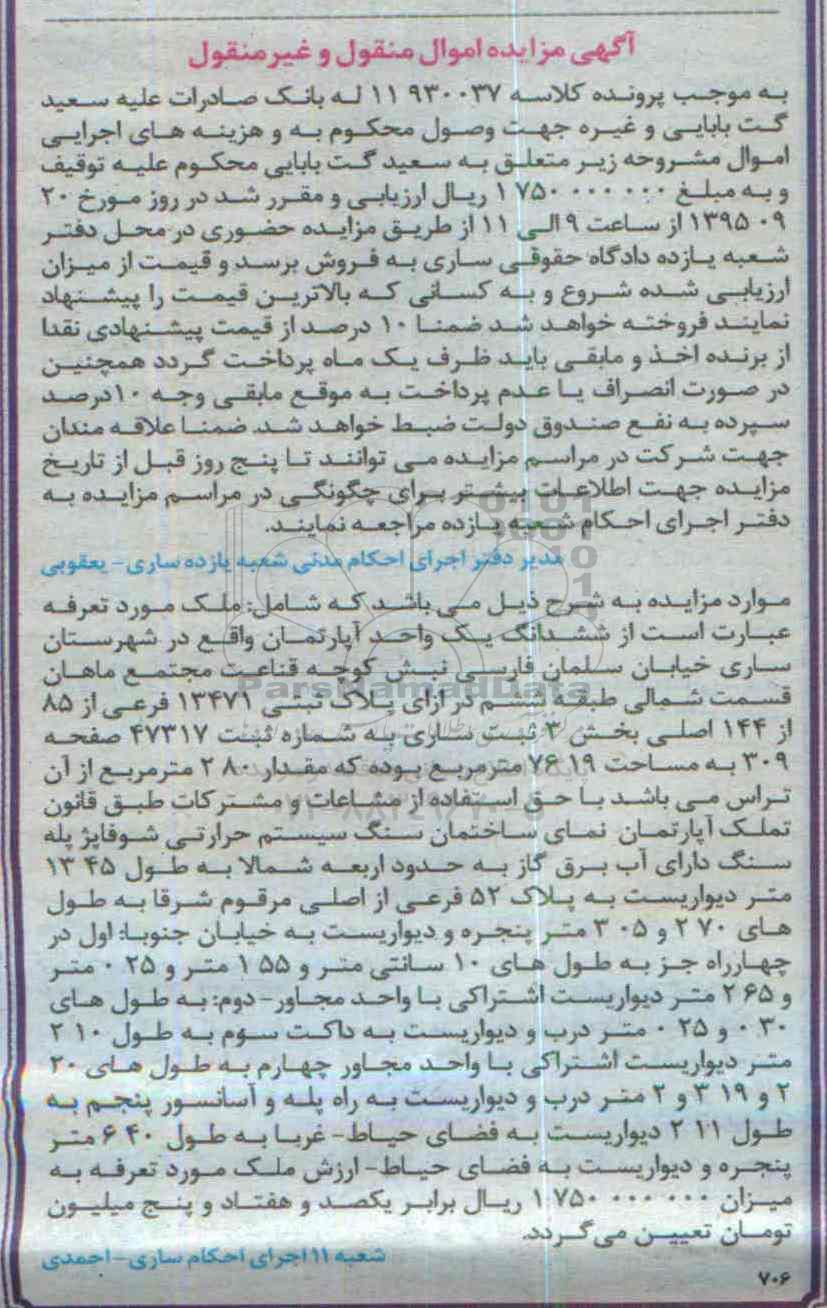 آگهی مزایده اموال منقول و غیر منقول
به موجب پرونده کلاسه ۹۳۰۰۳۷ ۱۱ له بانک صادرات علیه سعید
گت بابایی و غیره جهت وصول محکوم به و هزینه های اجرایی
اموال مشروحه زیر متعلق به سعید گت بابایی محکوم علیه توقیف
و به مبلغ ۰۰۰ ۰۰۰ ۷۵۰ ۱ ریال ارزیابی و مقرر شد در روز مورخ ۲۰
۰۹ ۱۳۹۵ از ساعت ۹ الی ۱۱ از طریق مزایده حضوری در محل دفتر
شعبه یازده دادگاه حقوقی ساری به فروش برسد و قیمت از میزان
ارزیابی شده شروع و به کسانی که بالاترین قیمت را پیشنهاد
نمایند فروخته خواهد شد ضمنا ۱۰ درصد از قیمت پیشنهادی نقدا
از برنده اخذ و مابقی باید ظرف یک ماه پرداخت گردد همچنین
در صورت انصراف یا عدم پرداخت به موقع مابقی وجه ۱۰درصد
سپرده به نفع صندوق دولت ضبط خواهد شد. ضمنا علاقه مندان
جهت شرکت در مراسم مزایده می توانند تا پنج روز قبل از تاریخ
مزایده جهت اطلاعات بیشتر برای چگونگی در مراسم مزایده به
دفتر اجرای احکام شعبه یازده مراجعه نمایند.
مدیر دفتر اجرای احکام مدنی شعبه یازده ساری - یعقوبی
موارد مزایده به شرح ذیل می باشد که شامل: ملک مورد تعرفه
عبارت است از ششدانگ یک واحد آپارتمان واقع در شهرستان
ساری خیابان سلمان فارسی نبش کوچه قناعت مجتمع ماهان
ParsNamadData
قسمت شمالی طبقه ششم در ازای پلاک ثبتی ۱۳۴۷۱ فرعی از ۸۵
از ۱۴۴ اصلی بخش ۳ ثبت ساری به شماره ثبت ۴۷۳۱۷ صفحه
۳۰۹ به مساحت ۱۹ ۷۶ مترمربع بوده که مقدار ۸۰ ۲ مترمربع از آن
تراس می باشد با حق استفاده از مشاعات و مشترکات طبق قانون
تملک آپارتمان نمای ساختمان سنگ سیستم حرارتی شوفاژ پله
سنگ دارای آب برق گاز به حدود اربعه شمالا به طول ۴۵ ۱۳
متر دیواریست به پلاک ۵۲ فرعی از اصلی مرقوم شرقا به طول
های ۷۰ ۲ و ۰۵ ۳ متر پنجره و دیواریست به خیابان جنوبا: اول در
چهارراه جز به طول های ۱۰ سانتی متر و ۵۵ ۱ متر و ۲۵ ۰ متر
و ۶۵ ۲ متر دیواریست اشتراکی با واحد مجاور- دوم: به طول های
۳۰ ۰ و ۲۵ ۰ متر درب و دیواریست به داکت سوم به طول ۱۰ ۲
متر دیواریست اشتراکی با واحد مجاور چهارم به طول های ۲۰
۲ و ۱۹ ۳ و ۲ متر درب و دیواریست به راه پله و آسانسور پنجم به
طول ۱۱ ۲ دیواریست به فضای حیاط- غربا به طول ۴۰ ۶ متر
پنجره و دیواریست به فضای حیاط- ارزش ملک مورد تعرفه به
میزان ۰۰۰ ۰۰۰ ۷۵۰ ۱ ریال برابر یکصد و هفتاد و پنج میلیون
تومان تعیین می گردد.
شعبه ۱۱ اجرای احکام ساری - احمدی
۷۰۶